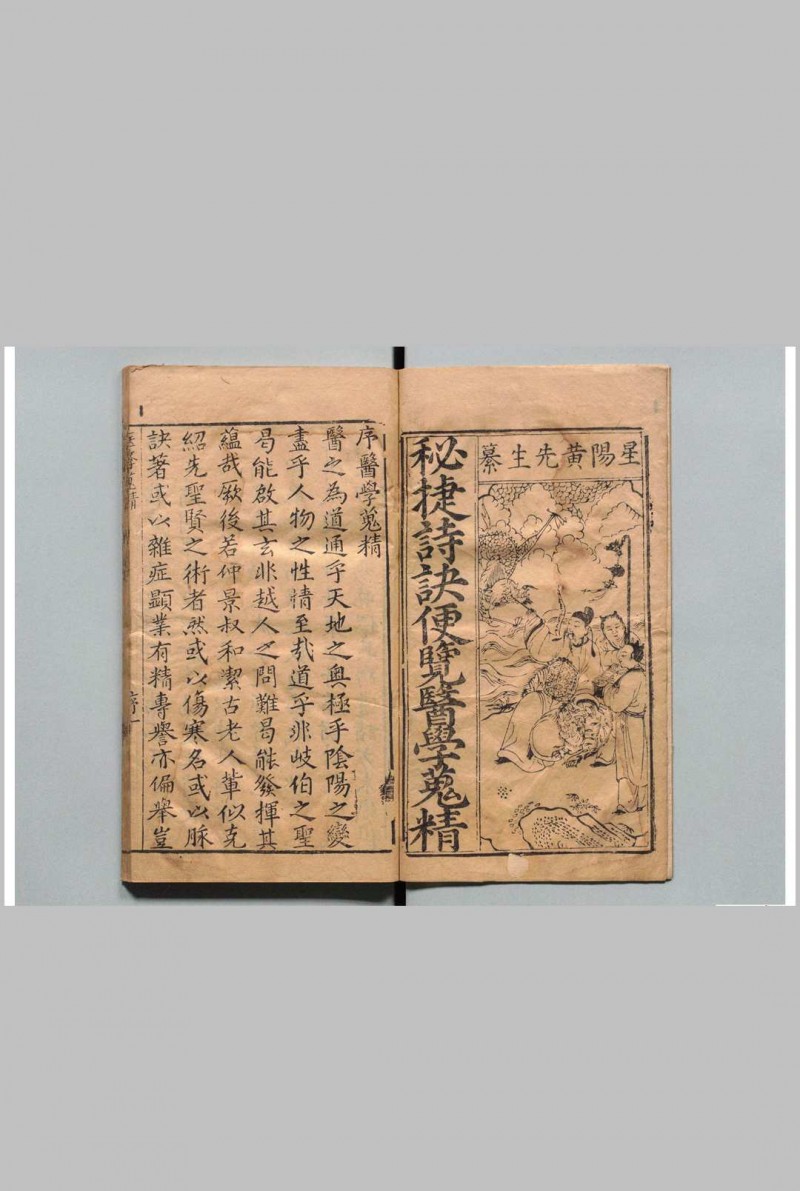 星陽黃先生纂
秘捷詩訣便覽醫學蒐精
序醫學蒐精
醫之為道通乎天地之奧極乎陰陽之變
盡乎人物之性情至哉道乎非岐伯之聖
曷能啟其玄非越人之問難曷能發揮其
蘊哉厥後若仲景叔和潔古老人輩似克
紹先聖賢之術者然或以傷寒名或以脉
訣著或以雜症顯業有精專譽亦偏舉豈
序一